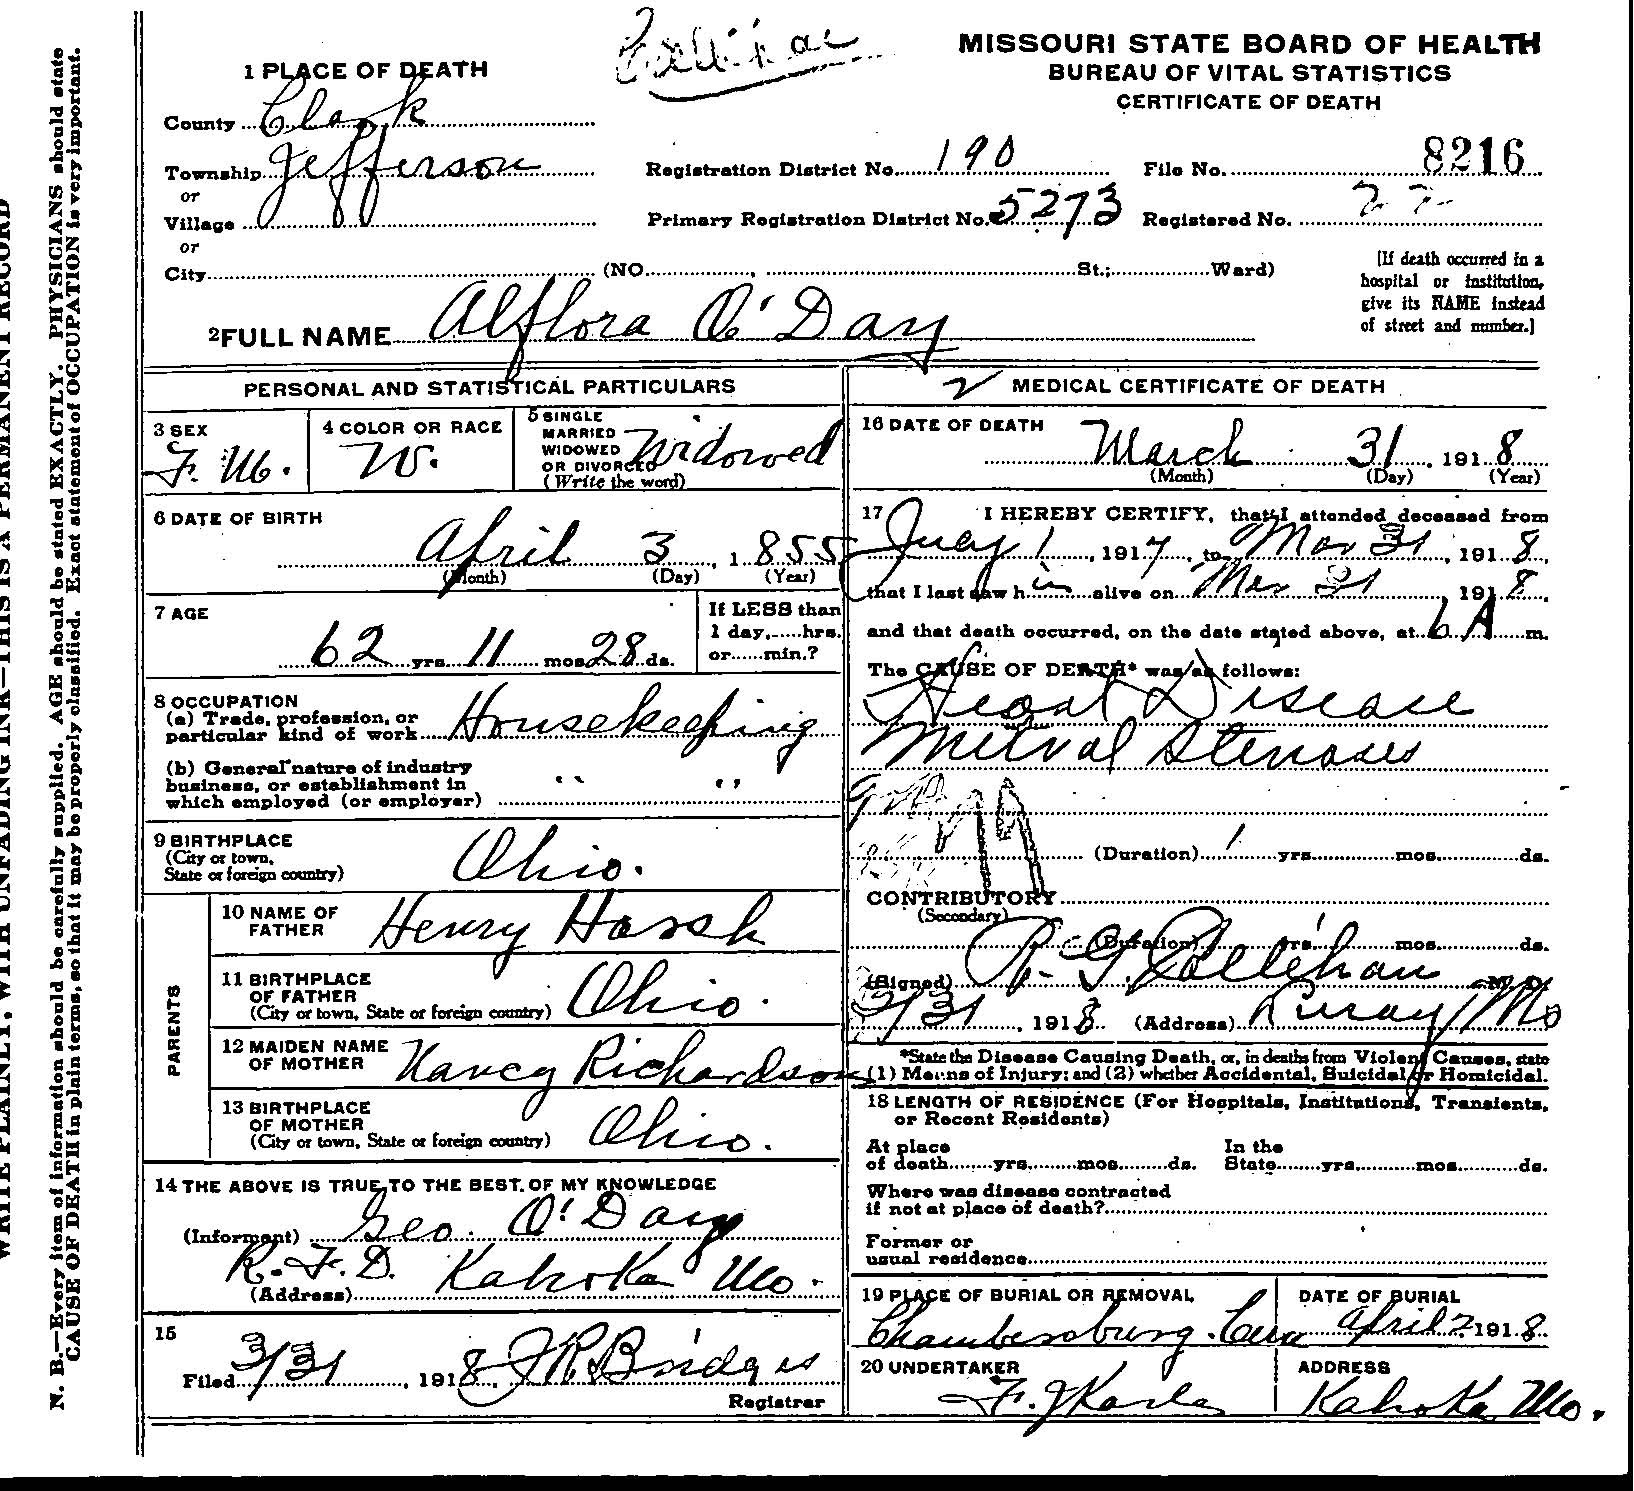 MISSOURI STATE BOARD OF HEALTH
BUREAU OF VITAL STATISTICS
CERTIFICATE OF DEATH
1 PLACE OF DEATH
County Clark
Township Jefferson
or
Village
or
City (NO. , St.; Ward)
Registration District No. 190
File No. 8216
Primary Registration District No. 5273
Registered No.
[If death occurred in a
hospital or institution,
give its NAME instead
of street and number.]
2 FULL NAME Alflora O'Day
PERSONAL AND STATISTICAL PARTICULARS
3 SEX
F. M.
4 COLOR OR RACE
W.
5 SINGLE
MARRIED
WIDOWED
OR DIVORCED
(Write the word)
Widowed
6 DATE OF BIRTH
April 3, 1855
(Month) (Day) (Year)
7 AGE
62 yrs. 11 mos. 28 ds.
If LESS than
1 day, hrs.
or min.?
8 OCCUPATION
(a) Trade, profession, or
particular kind of work Housekeeping
(b) General nature of industry
business, or establishment in
which employed (or employer) " "
9 BIRTHPLACE
(City or town,
State or foreign country)
Ohio.
PARENTS
10 NAME OF
FATHER
Henry
11 BIRTHPLACE
OF FATHER
(City or town, State or foreign country) Ohio.
12 MAIDEN NAME
OF MOTHER Nancy Richardson
13 BIRTHPLACE
OF MOTHER
(City or town, State or foreign country) Ohio.
14 THE ABOVE IS TRUE TO THE BEST OF MY KNOWLEDGE
(Informant) Geo. O'Day
R.F.D. Kahoka Mo.
(Address)
15
Filed 3/31, 1918, J R Bridges
Registrar
MEDICAL CERTIFICATE OF DEATH
16 DATE OF DEATH
March 31, 1918
(Month) (Day) (Year)
17 I HEREBY CERTIFY, that I attended deceased from
1, 1917, to Mar 31, 1918,
that I last saw h alive on Mar 31 1918,
and that death occurred, on the date stated above, at 6 A m.
The CAUSE OF DEATH* was as follows:
Heart Disease
Mitral Stenoses
(Duration) 1 yrs. mos. ds.
CONTRIBUTORY
(Secondary)
(Duration) yrs. mos. ds.
(Signed) Callihan M. D.
3/31, 1918 (Address) Luray Mo
*State the Disease Causing Death, or, in deaths from Violent Causes, state
(1) Means of Injury; and (2) whether Accidental, Suicidal or Homicidal.
18 LENGTH OF RESIDENCE (For Hospitals, Institutions, Transients,
or Recent Residents)
At place
of death yrs. mos. ds.
In the
State yrs. mos. ds.
Where was disease contracted
if not at place of death?
Former or
usual residence
19 PLACE OF BURIAL OR REMOVAL
Chambersburg. Cem
DATE OF BURIAL
April 2 1918
20 UNDERTAKER
F. J Karle
ADDRESS
Kahoka Mo.
N. B.—Every item of information should be carefully supplied. AGE should be stated EXACTLY. PHYSICIANS should state
CAUSE OF DEATH in plain terms, so that it may be properly classified. Exact statement of OCCUPATION is very important.
WRITE PLAINLY, WITH UNFADING INK—THIS IS A PERMANENT RECORD